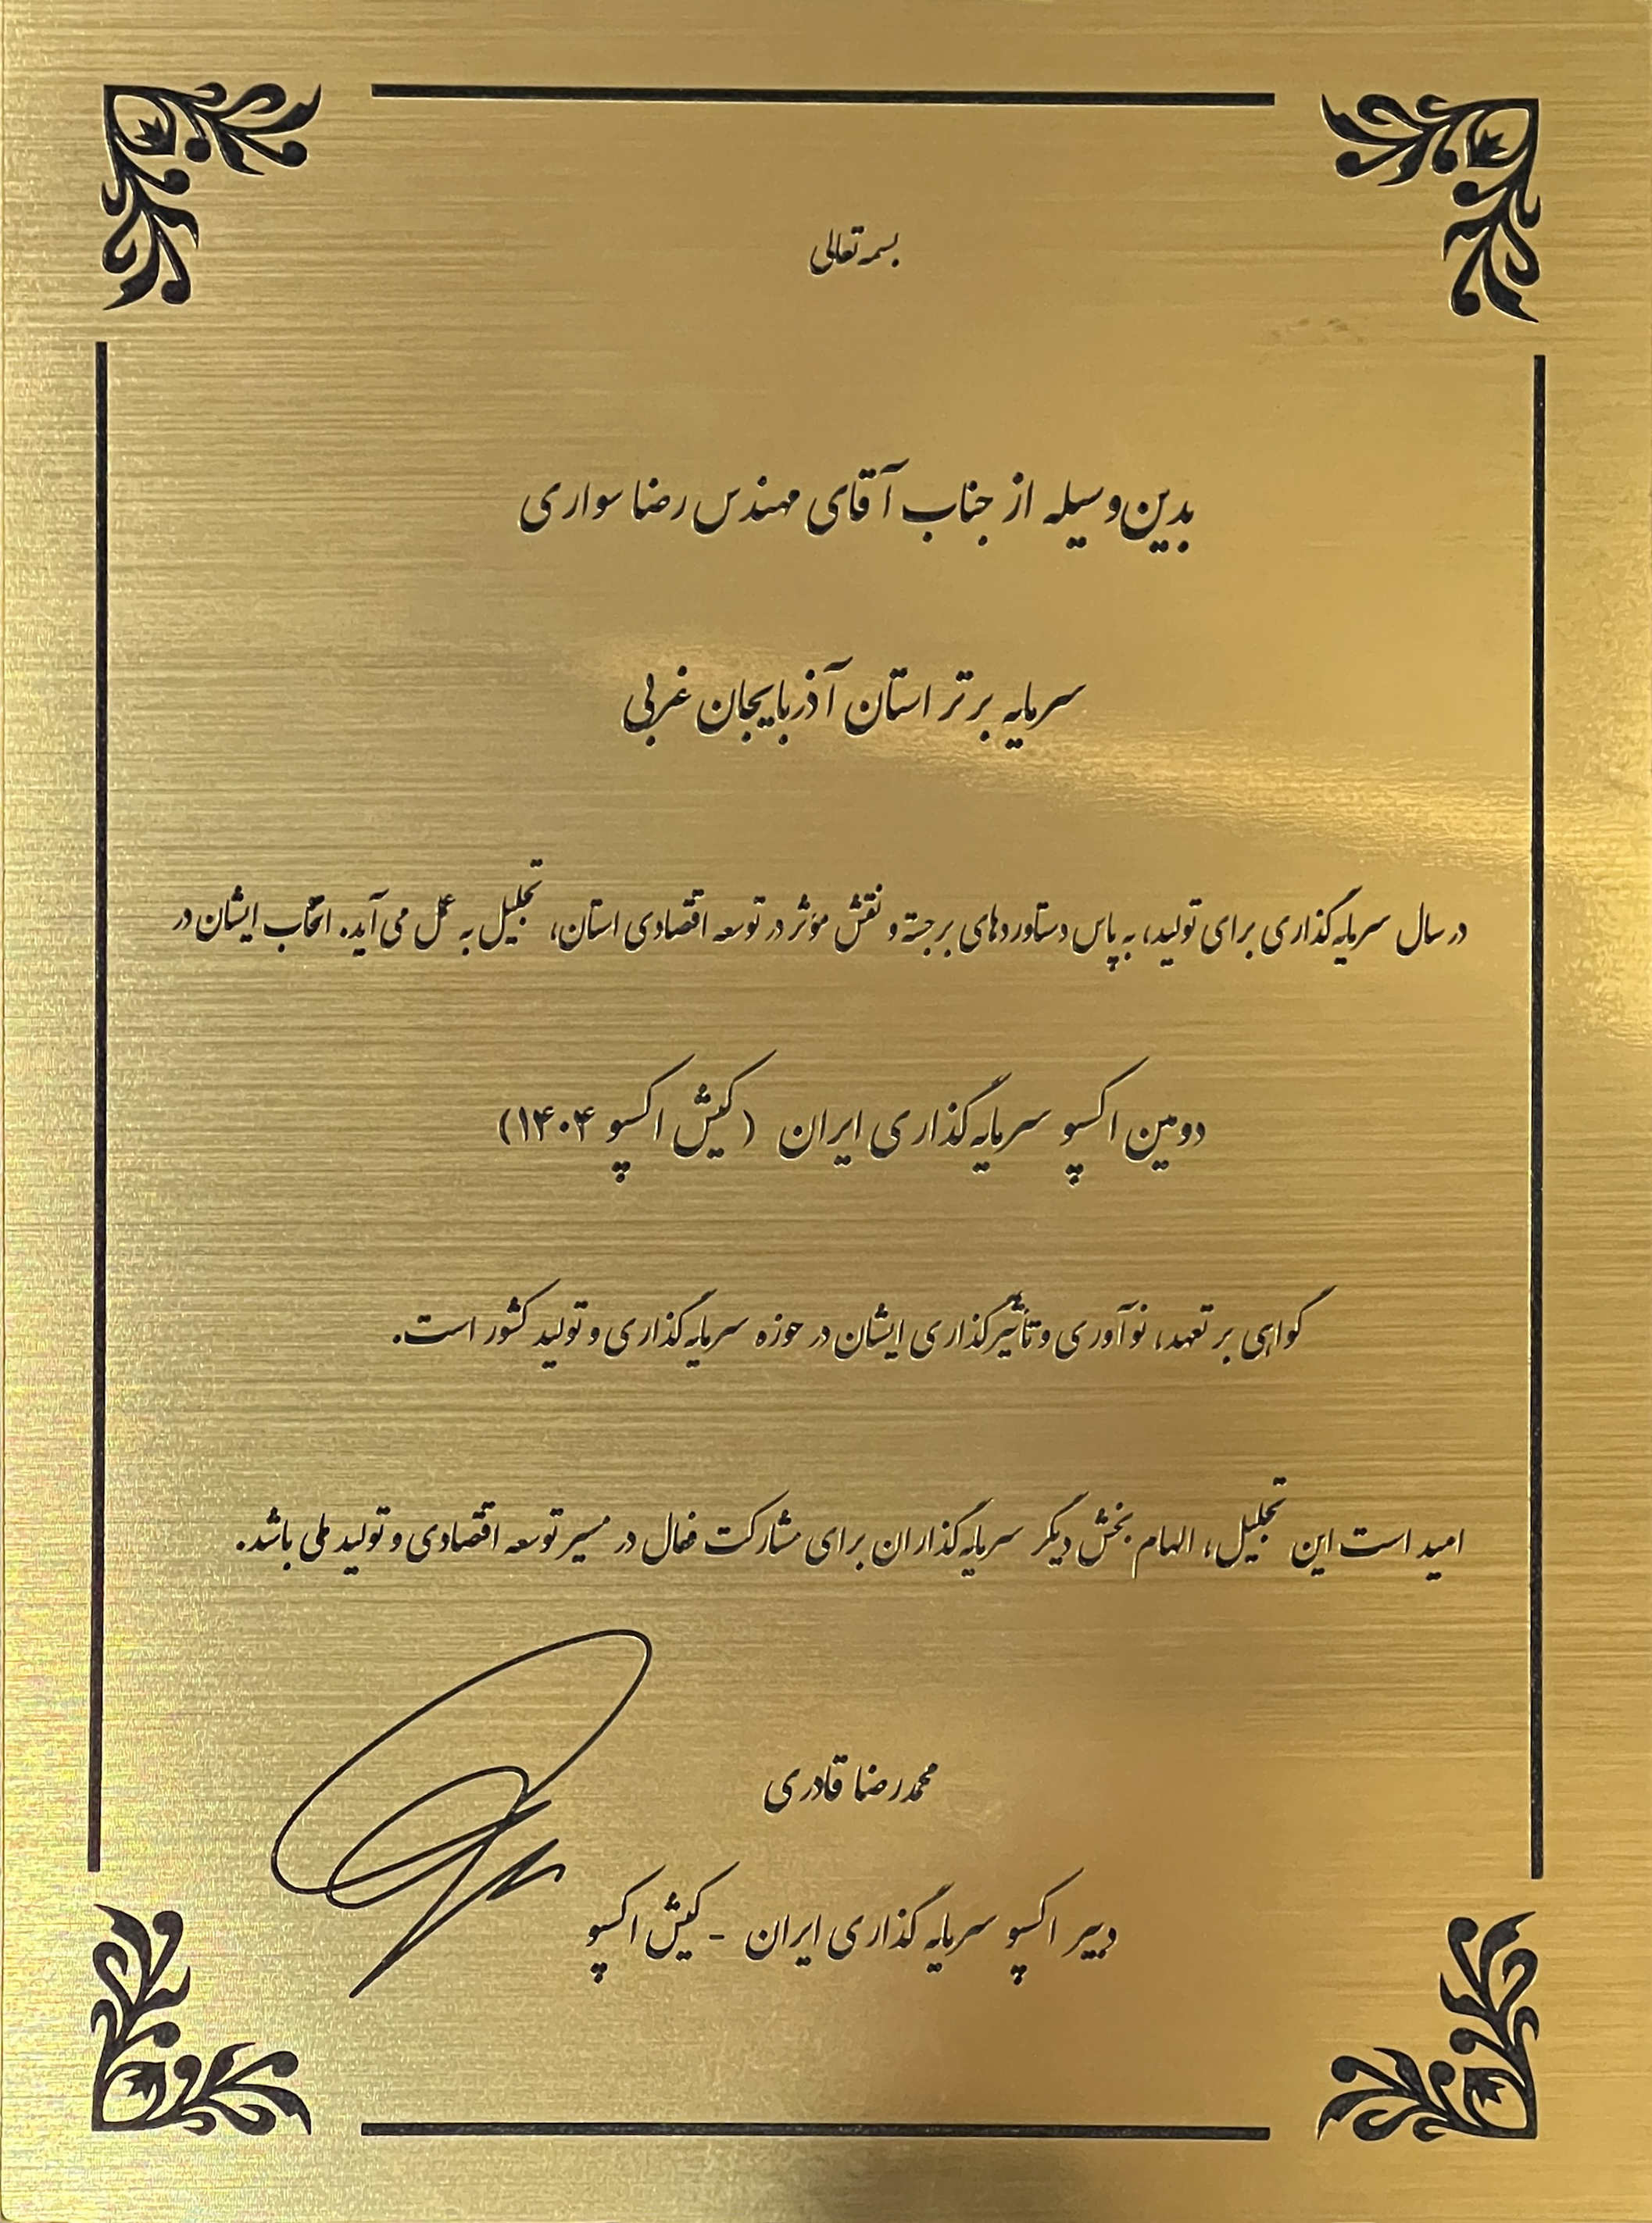 بسمه تعالی
بدین‌وسیله از جناب آقای مهندس رضا سواری
سرمایه برتر استان آذربایجان غربی
در سال سرمایه‌گذاری برای تولید، به پاس دستاوردهای برجسته و نقش مؤثر در توسعه اقتصادی استان، تجلیل به عمل می‌آید. انتخاب ایشان در
دومین اکسپو سرمایه‌گذاری ایران (کیش اکسپو ۱۴۰۴)
گواهی بر تعهد، نوآوری و تأثیرگذاری ایشان در حوزه سرمایه‌گذاری و تولید کشور است.
امید است این تجلیل، الهام بخش دیگر سرمایه‌گذاران برای مشارکت فعال در مسیر توسعه اقتصادی و تولید ملی باشد.
محمدرضا قادری
دبیر اکسپو سرمایه گذاری ایران - کیش اکسپو